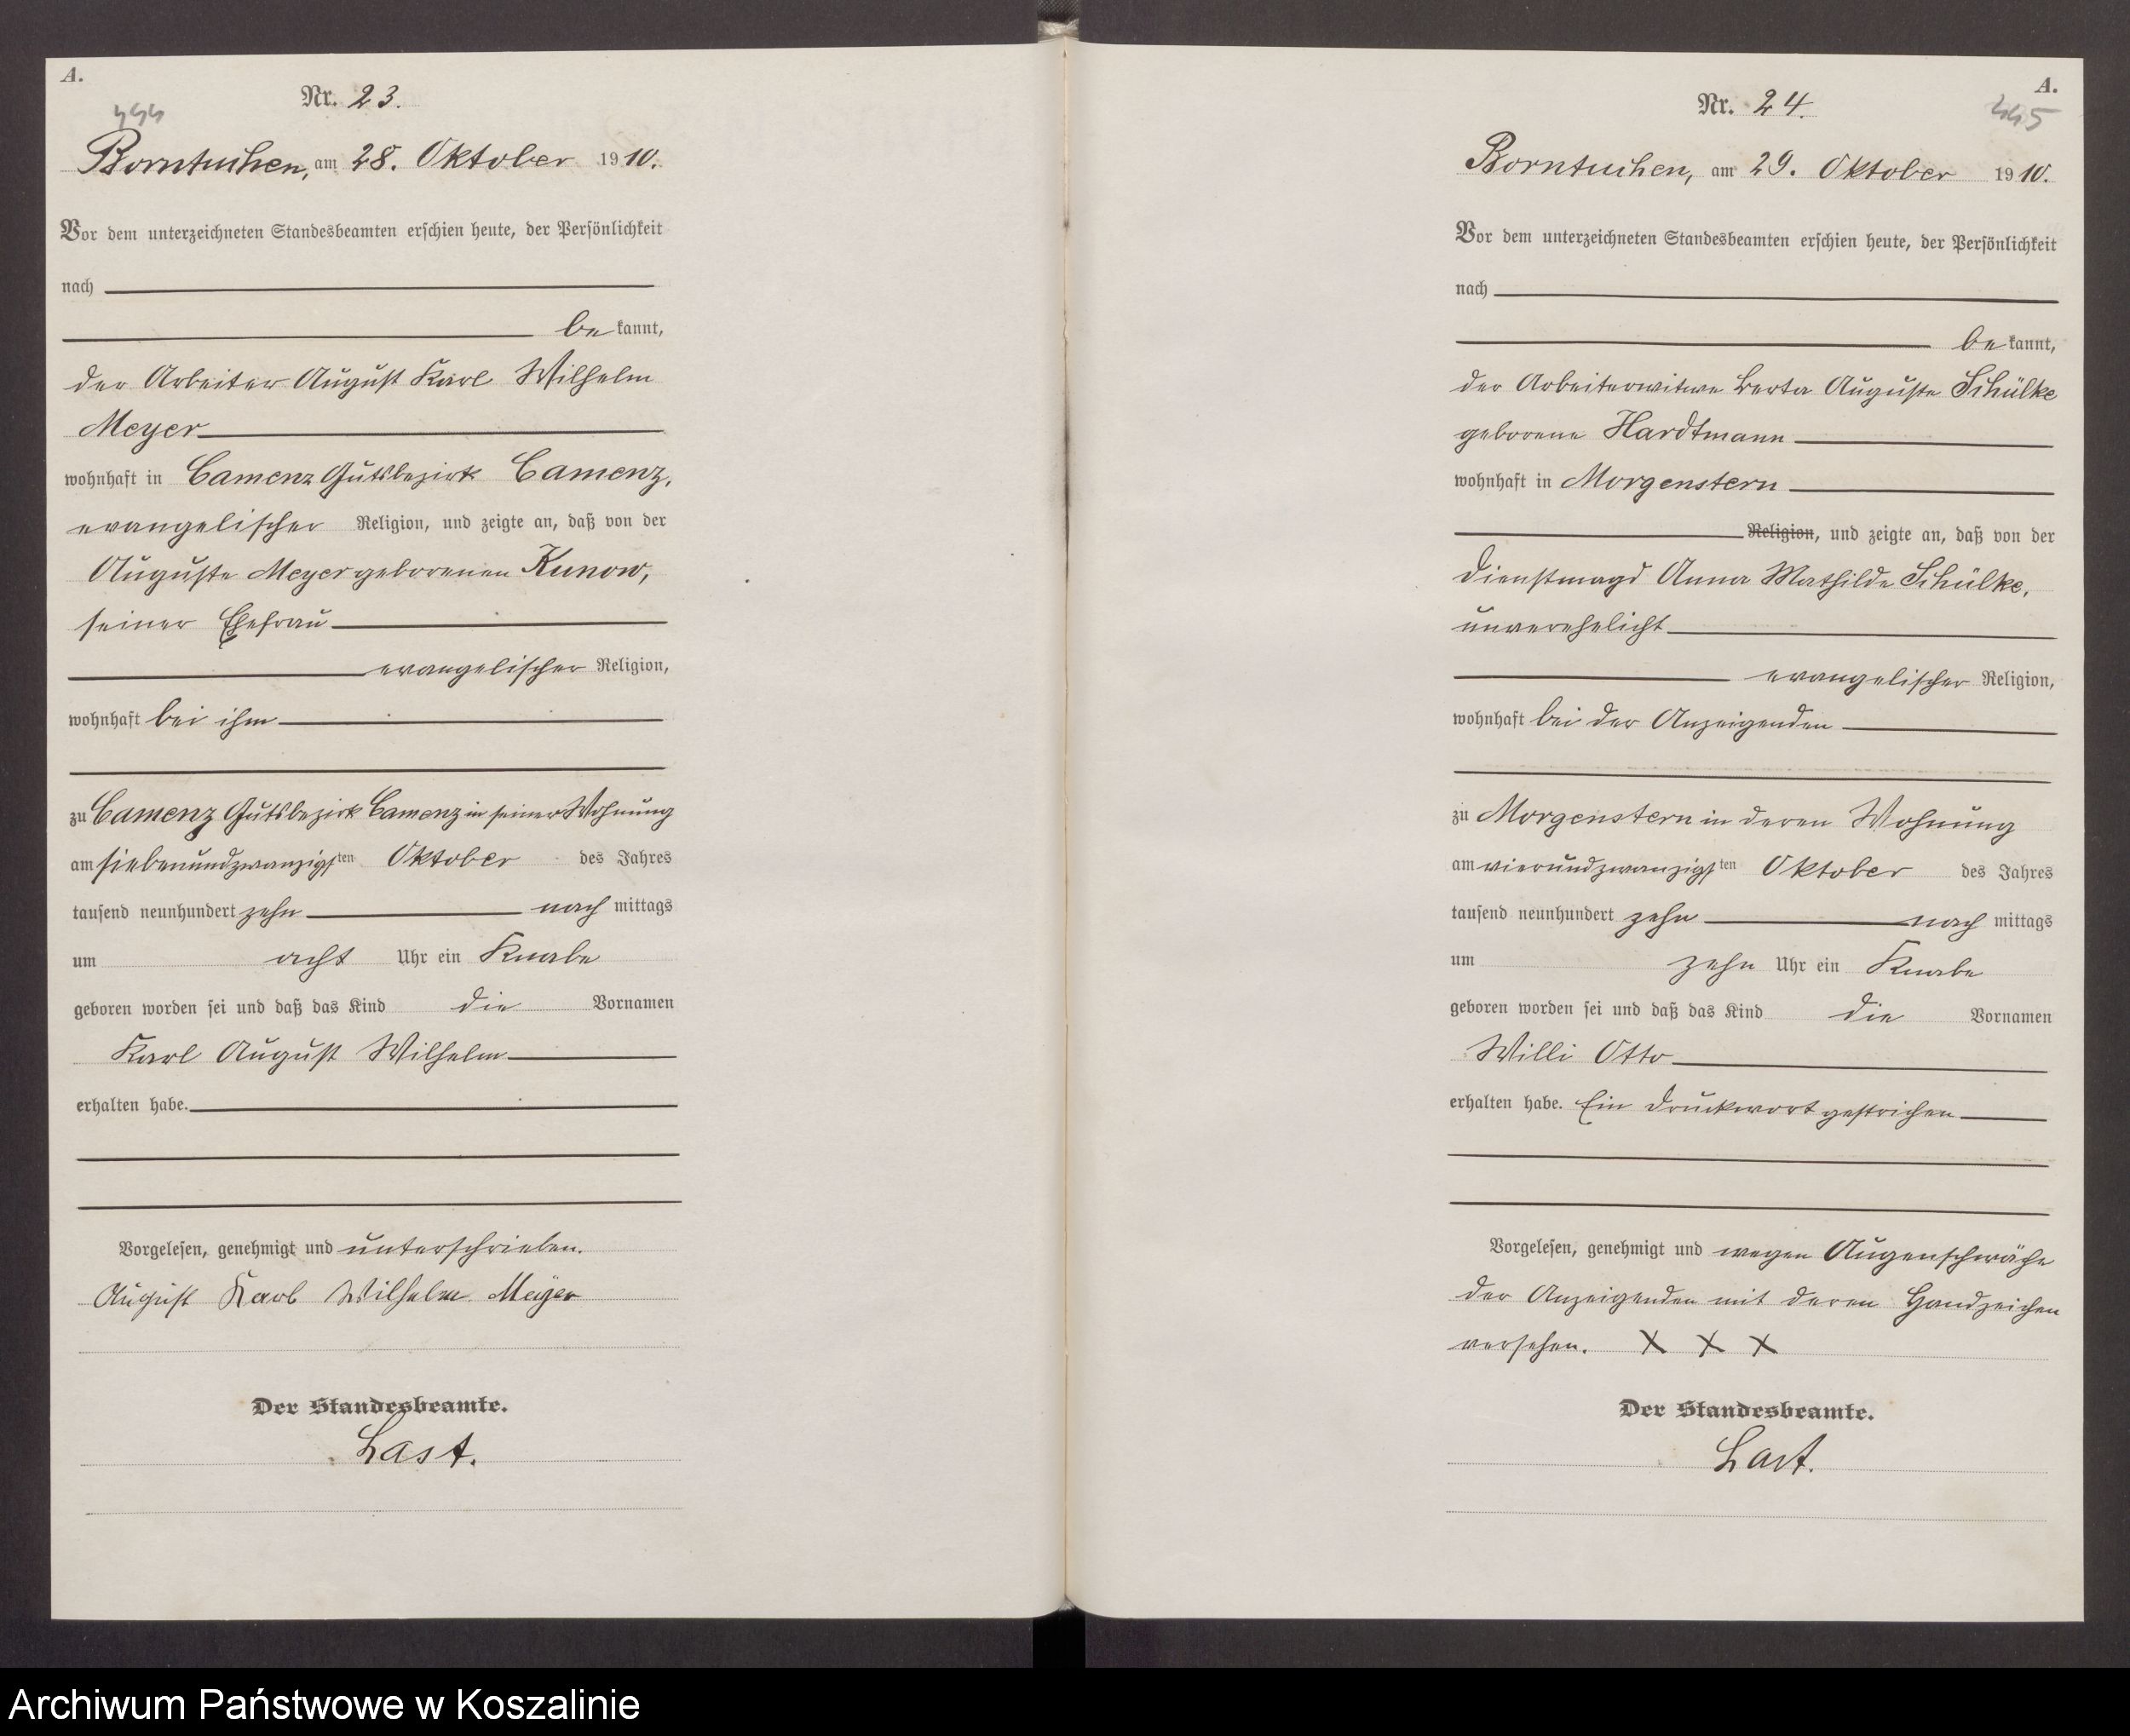 A.
Nr. 23.
444
Borntuchen, am 28. Oktober 1910.
Vor dem unterzeichneten Standesbeamten erschien heute, der Persönlichkeit
nach
be kannt,
der Arbeiter August Karl Wilhelm
Meyer
wohnhaft in Camenz Gutsbezirk Camenz,
evangelischer Religion, und zeigte an, daß von der
Auguste Meyer geborenen Kunow,
seiner Ehefrau
evangelischer Religion,
wohnhaft bei ihm
zu Camenz Gutsbezirk Camenz in seiner Wohnung
am siebenundzwanzigsten Oktober des Jahres
tausend neunhundert zehn nach mittags
um acht Uhr ein Knabe
geboren worden sei und daß das Kind die Vornamen
Karl August Wilhelm
erhalten habe.
Vorgelesen, genehmigt und unterschrieben.
August Karl Wilhelm Meyer
Der Standesbeamte.
Last.
A.
Nr. 24.
445
Borntuchen, am 29. Oktober 1910.
Vor dem unterzeichneten Standesbeamten erschien heute, der Persönlichkeit
nach
be kannt,
der Arbeiterwitwe Berta Auguste Schülke
geborene Hardtmann
wohnhaft in Morgenstern
Religion, und zeigte an, daß von der
Dienstmagd Anna Mathilde Schülke,
unverehelicht
evangelischer Religion,
wohnhaft bei der Anzeigenden
zu Morgenstern in deren Wohnung
am vierundzwanzigsten Oktober des Jahres
tausend neunhundert zehn nach mittags
um zehn Uhr ein Knabe
geboren worden sei und daß das Kind die Vornamen
Willi Otto
erhalten habe. Ein Druckwort gestrichen
Vorgelesen, genehmigt und wegen Augenschwäche
der Anzeigenden mit deren Handzeichen
versehen. X X X
Der Standesbeamte.
Last.
Archiwum Państwowe w Koszalinie